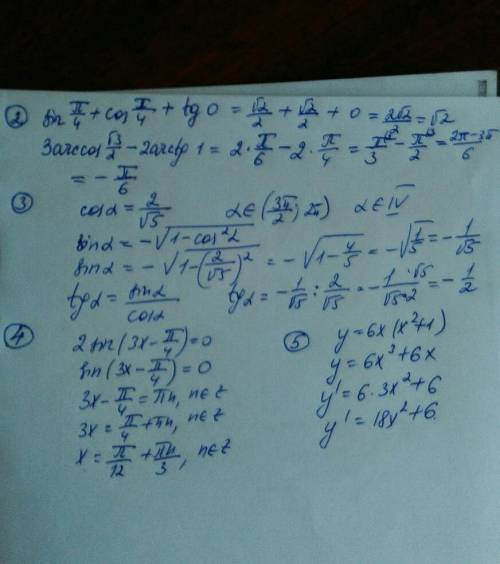 ② sin π/4 + cos π/4 + tg 0 = √2/2 + √2/2 + 0 = 2√2/2 = √2
3arccos √3/2 - 2arctg 1 = 2·π/6 - 2·π/4 = π/3 - π/2 = 2π-3π/6
= - π/6
③ cosα = 2/√5 α∈(3π/2; 2π) α∈IV
sinα = -√1-cos²α
sinα = -√1-(2/√5)² = -√1-4/5 = -√1/5 = -1/√5
tgα = sinα/cosα tgα = -1/√5 : 2/√5 = -1·√5/√5·2 = -1/2
④ 2sin(3x-π/4)=0
sin(3x-π/4)=0
3x-π/4=πn, n∈z
3x=π/4+πn, n∈z
x=π/12+πn/3, n∈z
⑤ y=6x(x²+1)
y=6x³+6x
y'=6·3x²+6
y'=18x²+6